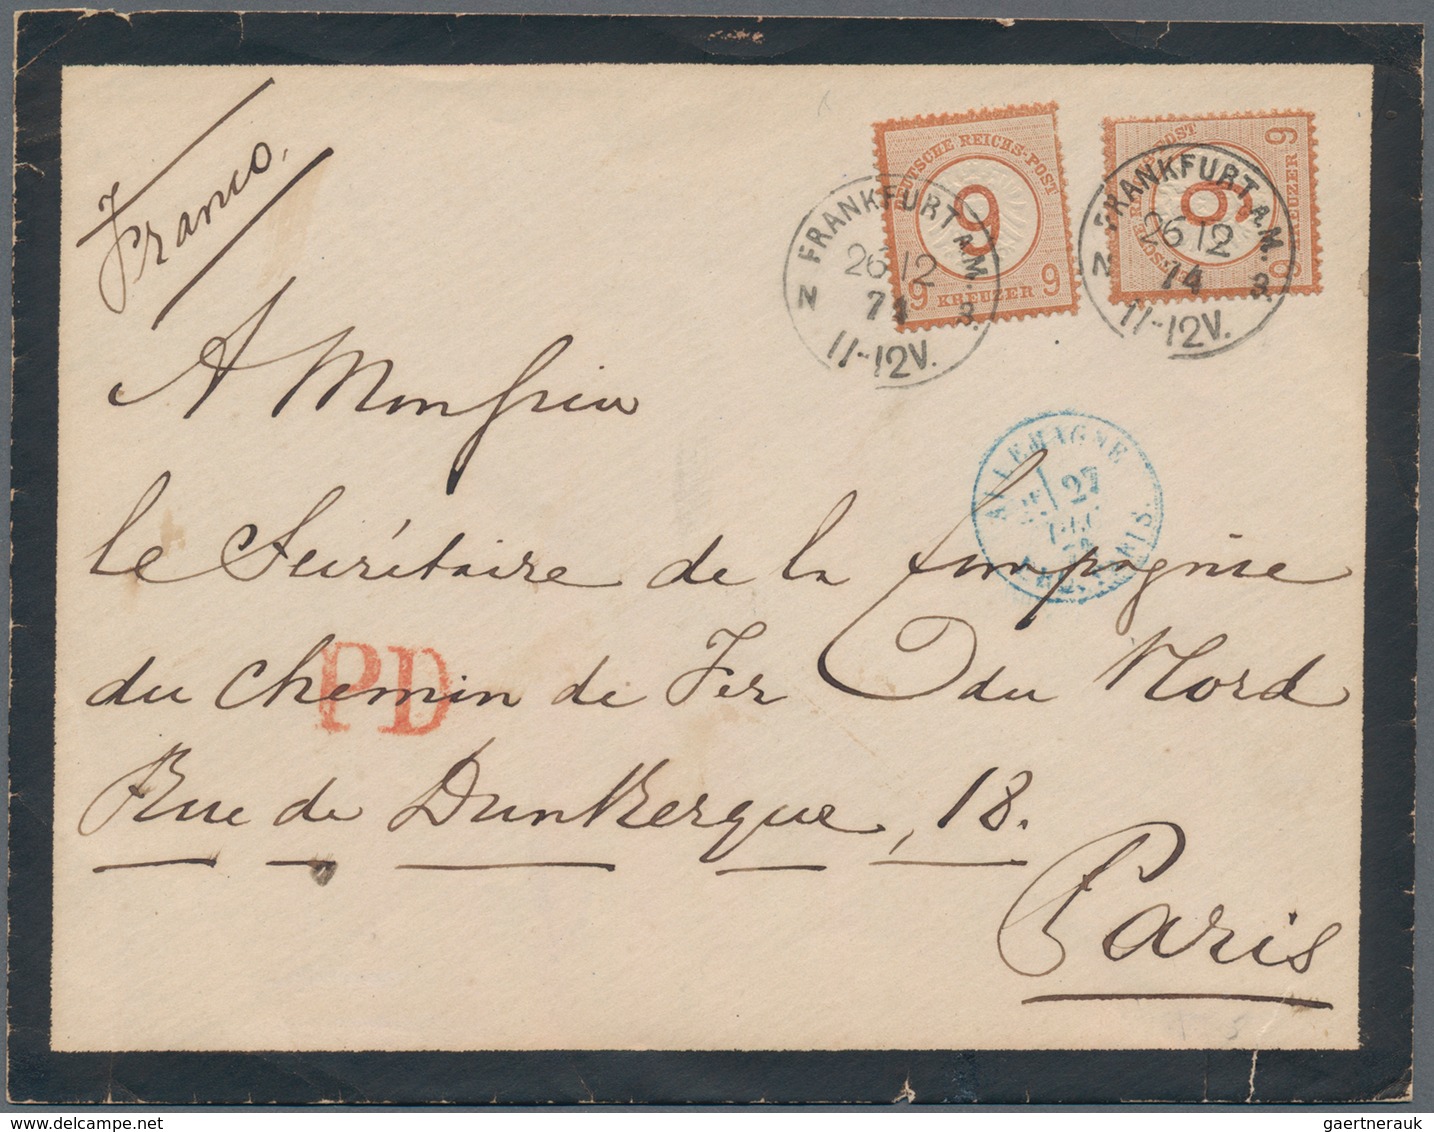 Franco.
DEUTSCHE REICHS-POST
9
9 KREUZER 9
9
9 KREUZER 9
FRANKFURT A.M.
26 12
74
Z 3.
11-12V.
FRANKFURT A.M.
26 12
74
Z 3.
11-12V.
A Monsieur
ALLEMAGNE
27
le Secrétaire de la Compagnie
PD
du Chemin de Fer du Nord
Rue de Dunkerque, 18.
Paris
gaertnerauk